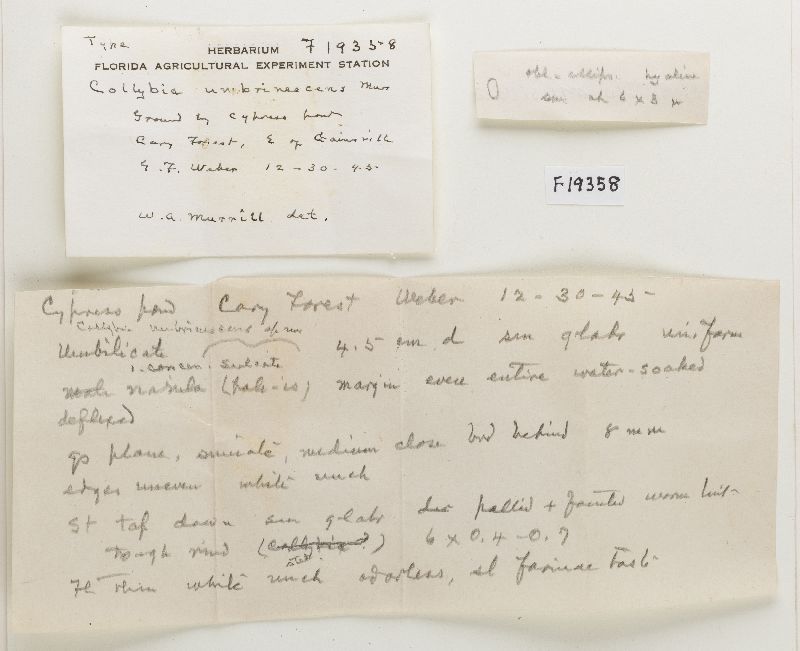 Type HERBARIUM F19358
FLORIDA AGRICULTURAL EXPERIMENT STATION
Collybia umbrinescens Murr
Ground by cypress pond
Cary Forest, E of Gainsville
G. F. Weber 12-30-45
W. A. Murrill det.
obl.-ellips. hyaline
sm 6 x 3 µ
F19358
Cypress pond Cary Forest Weber 12-30-45
Collybia umbrinescens sp nov
Umbilicate 4.5 cm d sm glabr uniform
margin even entire water-soaked
deflexed
gs plane, sinuate, medium close brd behind 8 mm
edges uneven white unch
St tap down sm glabr pallid +
Tough rind (Collybia?) 6 x 0.4-0.7
Fl thin white unch odorless, sl farinac taste